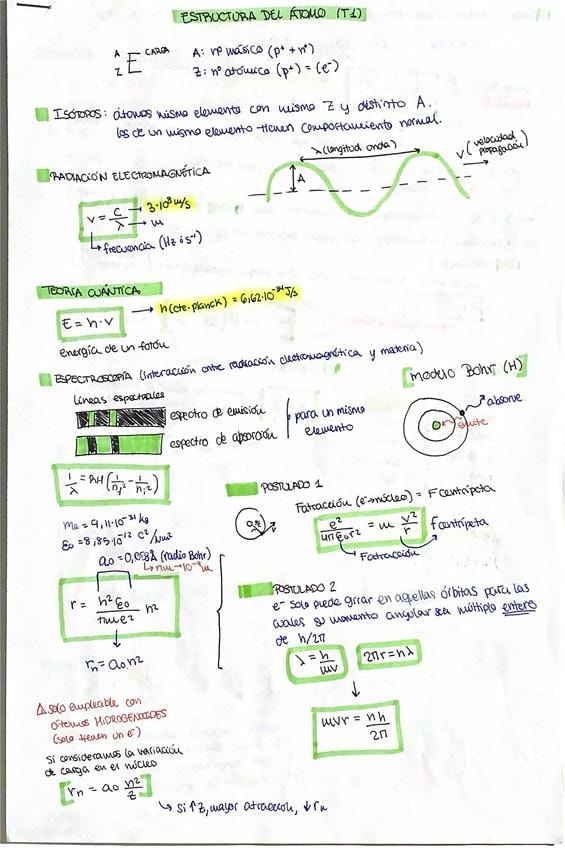 ESTRUCTURA DEL ÁTOMO (T1)
A CARGA
E
Z
A: nº másico (p⁺ + nº)
Z: nº atómico (p⁺) = (e⁻)
ISÓTOPOS: átomos mismo elemento con mismo Z y distinto A.
los de un mismo elemento tienen comportamiento normal.
λ (longitud onda)
v (velocidad propagación)
A
RADIACIÓN ELECTROMAGNÉTICA
ν = c/λ → 3·10⁸ m/s
→ m
↳ frecuencia (Hz ó s⁻¹)
TEORÍA CUÁNTICA
E = h·ν → h (cte. planck) = 6,62·10⁻³⁴ J/s
energía de un fotón
ESPECTROSCOPÍA (interacción entre radiación electromagnética y materia)
líneas espectrales
espectro de emisión
espectro de absorción
para un mismo
elemento
modelo Bohr (H)
absorve
emite
1/λ = RH (1/n₁² - 1/n₂²)
me = 9,11·10⁻³¹ kg
ε₀ = 8,85·10⁻¹² C²/Nm²
a₀ = 0,053Å (radio Bohr)
↳ nm → 10⁻⁹ m
r = h² ε₀/πme² n²
↓
rₙ = a₀ n²
POSTULADO 1
Fatracción (e⁻→núcleo) = F centrípeta
e²/4πε₀r² = m v²/r
f centrípeta
Fatracción
POSTULADO 2
e⁻ solo puede girar en aquellas órbitas para las
cuales su momento angular sea múltiplo entero
de h/2π
λ = h/mv
2πr = nλ
↓
mvr = nh/2π
⚠ solo empleable con
átomos HIDROGENOIDES
(solo tienen un e⁻)
si consideramos la variación
de carga en el núcleo
rₙ = a₀ n²/Z
↳ si ↑ Z, mayor atracción, ↓ rₙ